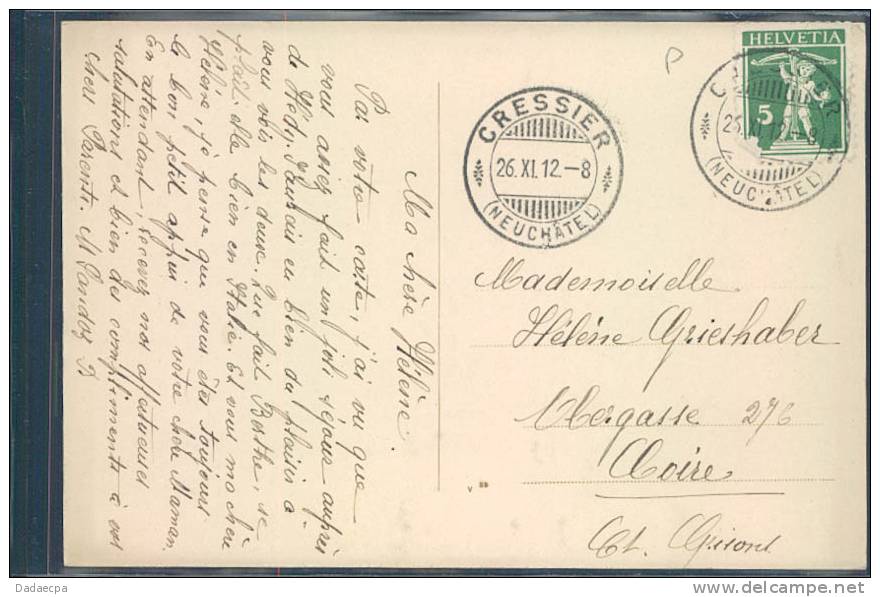 HELVETIA
5
CRESSIER
26.XI.12.-8
(NEUCHÂTEL)
CRESSIER
26.XI.12.-8
(NEUCHÂTEL)
Mademoiselle
Hélène Grieshaber
Obergasse 276
Coire
Ct. Grisons
V 89
Ma chère Hélène.
Par votre carte, j'ai vu que
vous avez fait un joli séjour auprès
de Hedy. J'aurais eu bien du plaisir à
vous voir les deux. Que fait Berthe, se
plaît-elle bien en Italie. Et vous ma chère
Hélène, je pense que vous êtes toujours
le bon petit appui de votre chère Maman.
En attendant, recevez nos affectueuses
salutations et bien des compliments à vos
chers Parents. M Sandoz B
Dadaecpa
www.delcampe.net